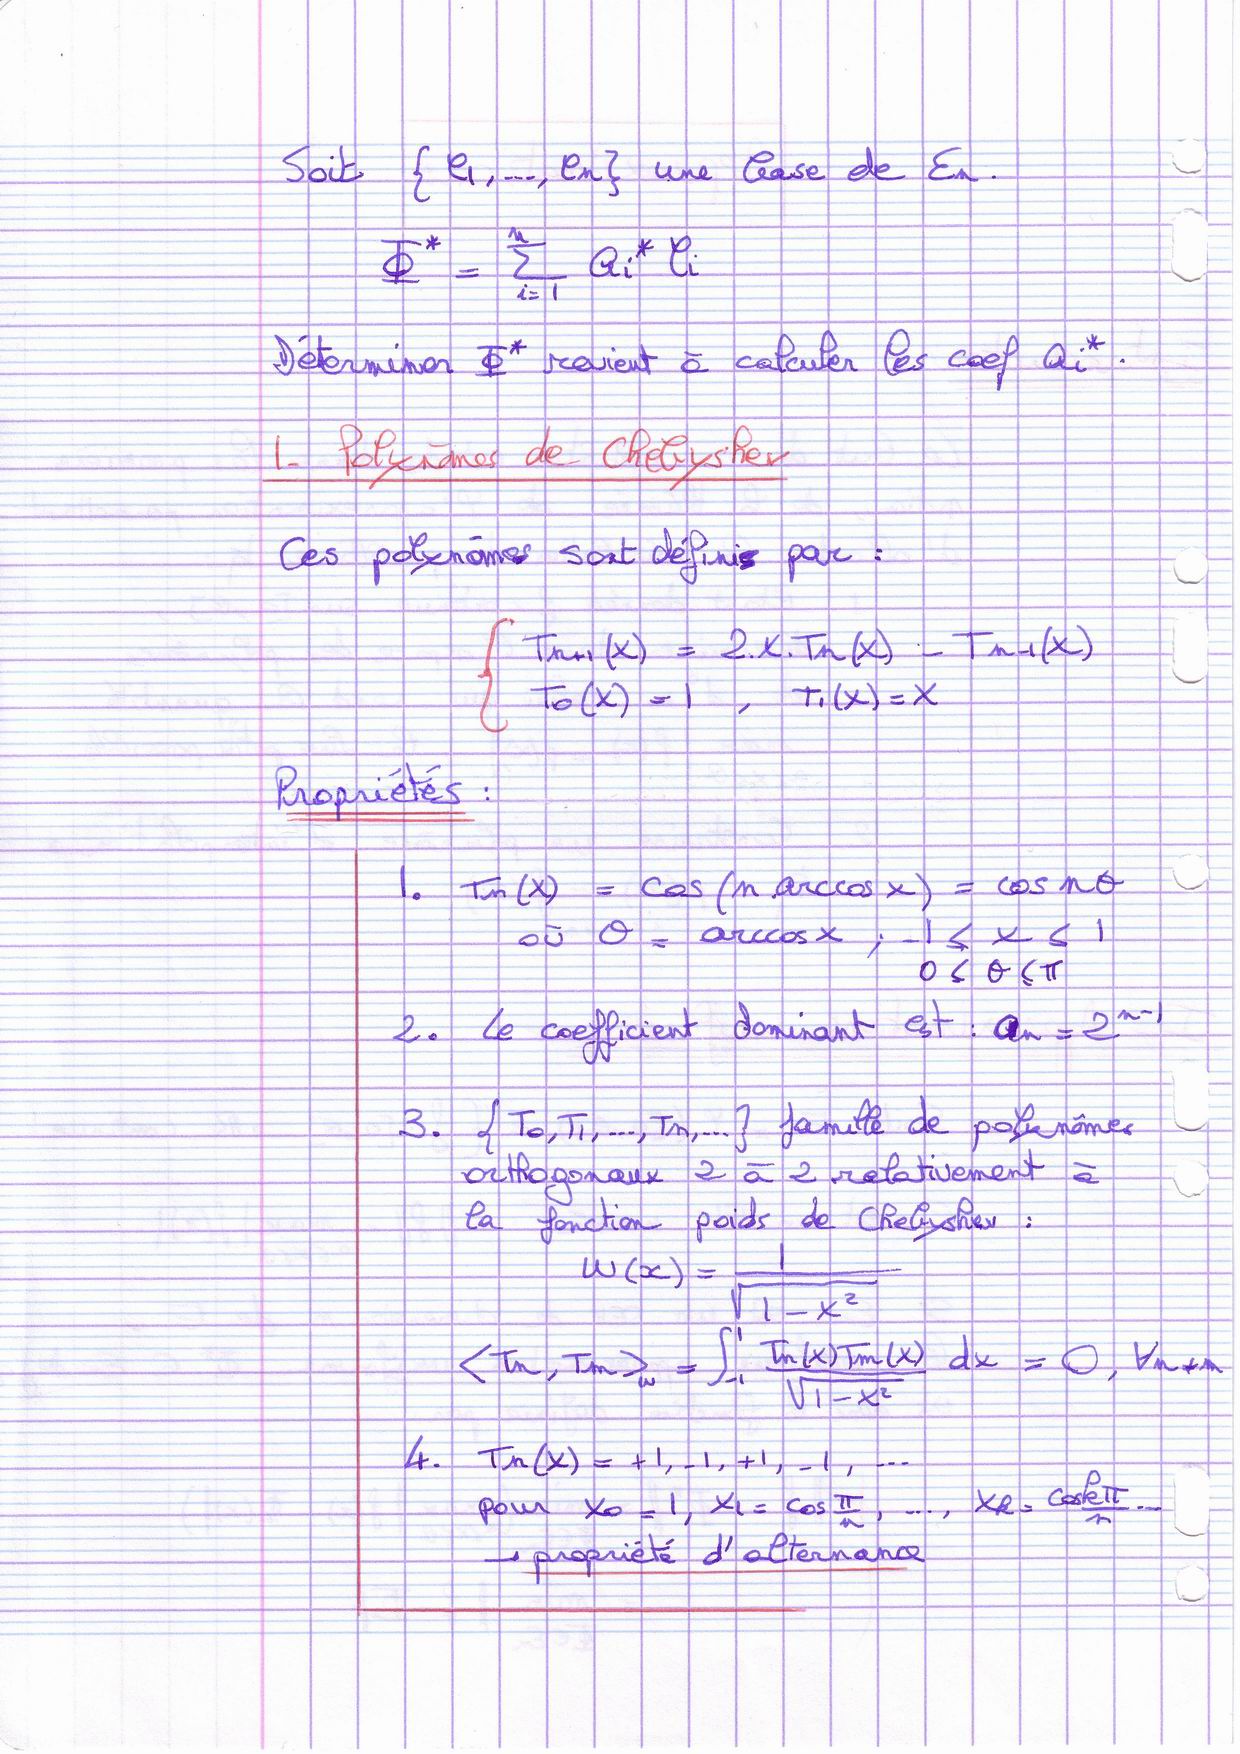 Soit {e₁, ..., en} une base de En.
Φ* = Σ_{i=1}^{n} ai* ei
Déterminer Φ* revient à calculer les coef ai*.
1- Polynômes de Chebyshev
Ces polynômes sont définis par :
Tn+1(x) = 2.x.Tn(x) - Tn-1(x)
T0(x) = 1 , T1(x) = x
Propriétés :
1. Tn(x) = cos(n arccos x) = cos nθ
où θ = arccos x ; -1 ≤ x ≤ 1
0 ≤ θ ≤ π
2. Le coefficient dominant est : an = 2^{n-1}
3. {T0, T1, ..., Tn, ...} famille de polynômes
orthogonaux 2 à 2 relativement à
la fonction poids de Chebyshev :
W(x) = 1/√(1-x²)
<Tn, Tm>w = ∫_{-1}^{1} Tn(x)Tm(x)/√(1-x²) dx = 0, ∀n≠m
4. Tn(x) = +1, -1, +1, -1, ...
pour x0 = 1, x1 = cos π/n, ..., xk = cos kπ/n ...
→ propriété d'alternance